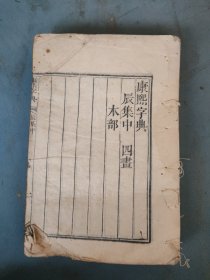 康熙字典
辰集中　四畫
木部